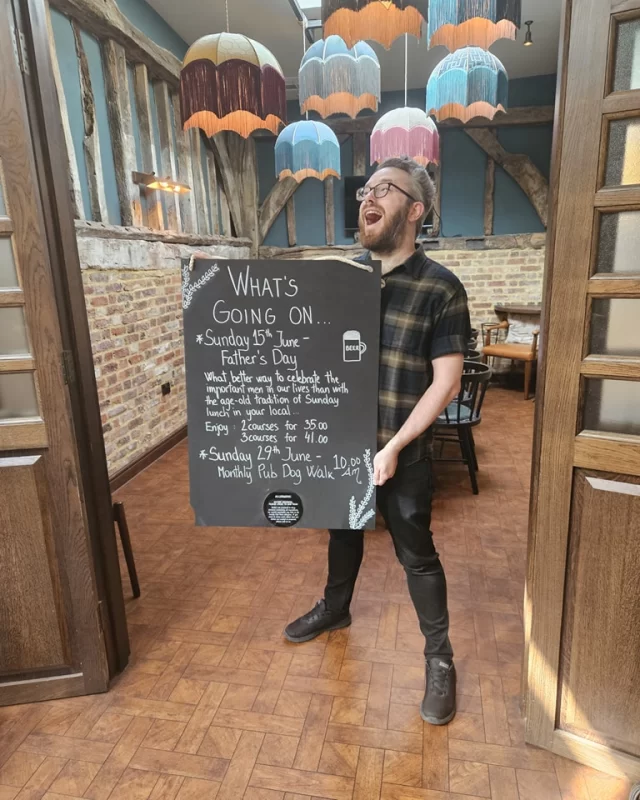 WHAT'S
GOING ON...
*Sunday 15th June -
Father's Day
BEER
What better way to celebrate the
important men in our lives than with
the age-old tradition of Sunday
lunch in your local...
Enjoy : 2 courses for 35.00
3 courses for 41.00
*Sunday 29th June - 10.00
Monthly Pub Dog Walk AM